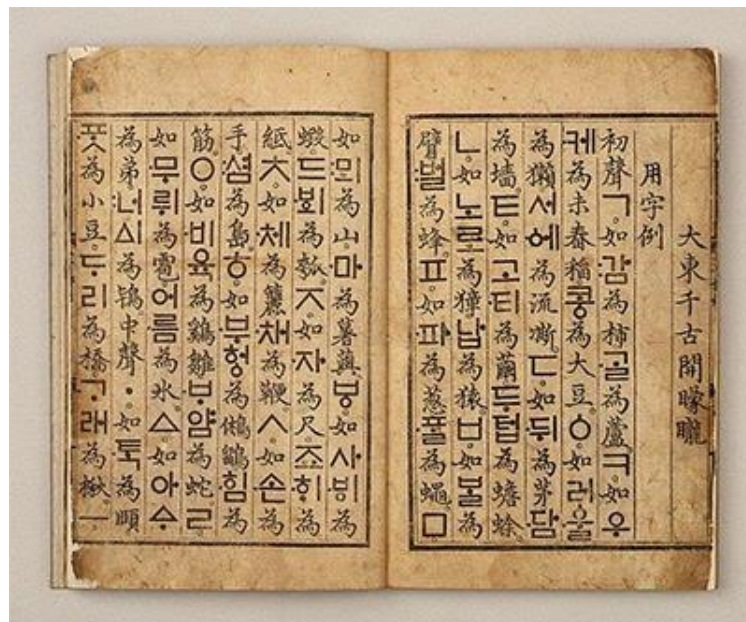 大東千古開矇矓
用字例
初聲ㄱ。如:감為柿。ᄀᆞᆯ為蘆。ㅋ。如우
케為未舂稻。콩為大豆。ㆁ。如러울
為獺。서에為流凘。ㄷ。如뒤為茅。담
為墻。ㅌ。如고티為繭。두텁為蟾蜍。
ㄴ。如노로為獐。납為猿。ㅂ。如ᄇᆞᆯ為
臂。:벌為蜂。ㅍ。如파為葱。ᄑᆞᆯ為蠅。ㅁ
如:뫼為山。마為薯藇。ㅸ。如사ᄫᅵ為
蝦。드ᄫᅴ為瓠。ㅈ。如자為尺。죠ᄒᆡ為
紙。ㅊ。如체為籭。채為鞭。ㅅ。如손為
手。:셤為島。ㅎ。如부헝為鵂鶹。힘為
筋。ㅇ。如비육為鷄雛。ᄇᆞ얌為蛇。ㄹ。
如무뤼為雹。어름為氷。ㅿ。如아ᅀᆞ
為弟。:너ᅀᅵ為鴇。中聲ㆍ。如ᄐᆞᆨ為頤
ᄑᆞᆺ為小豆。ᄃᆞ리為橋。ᄀᆞ래為楸。ㅡ